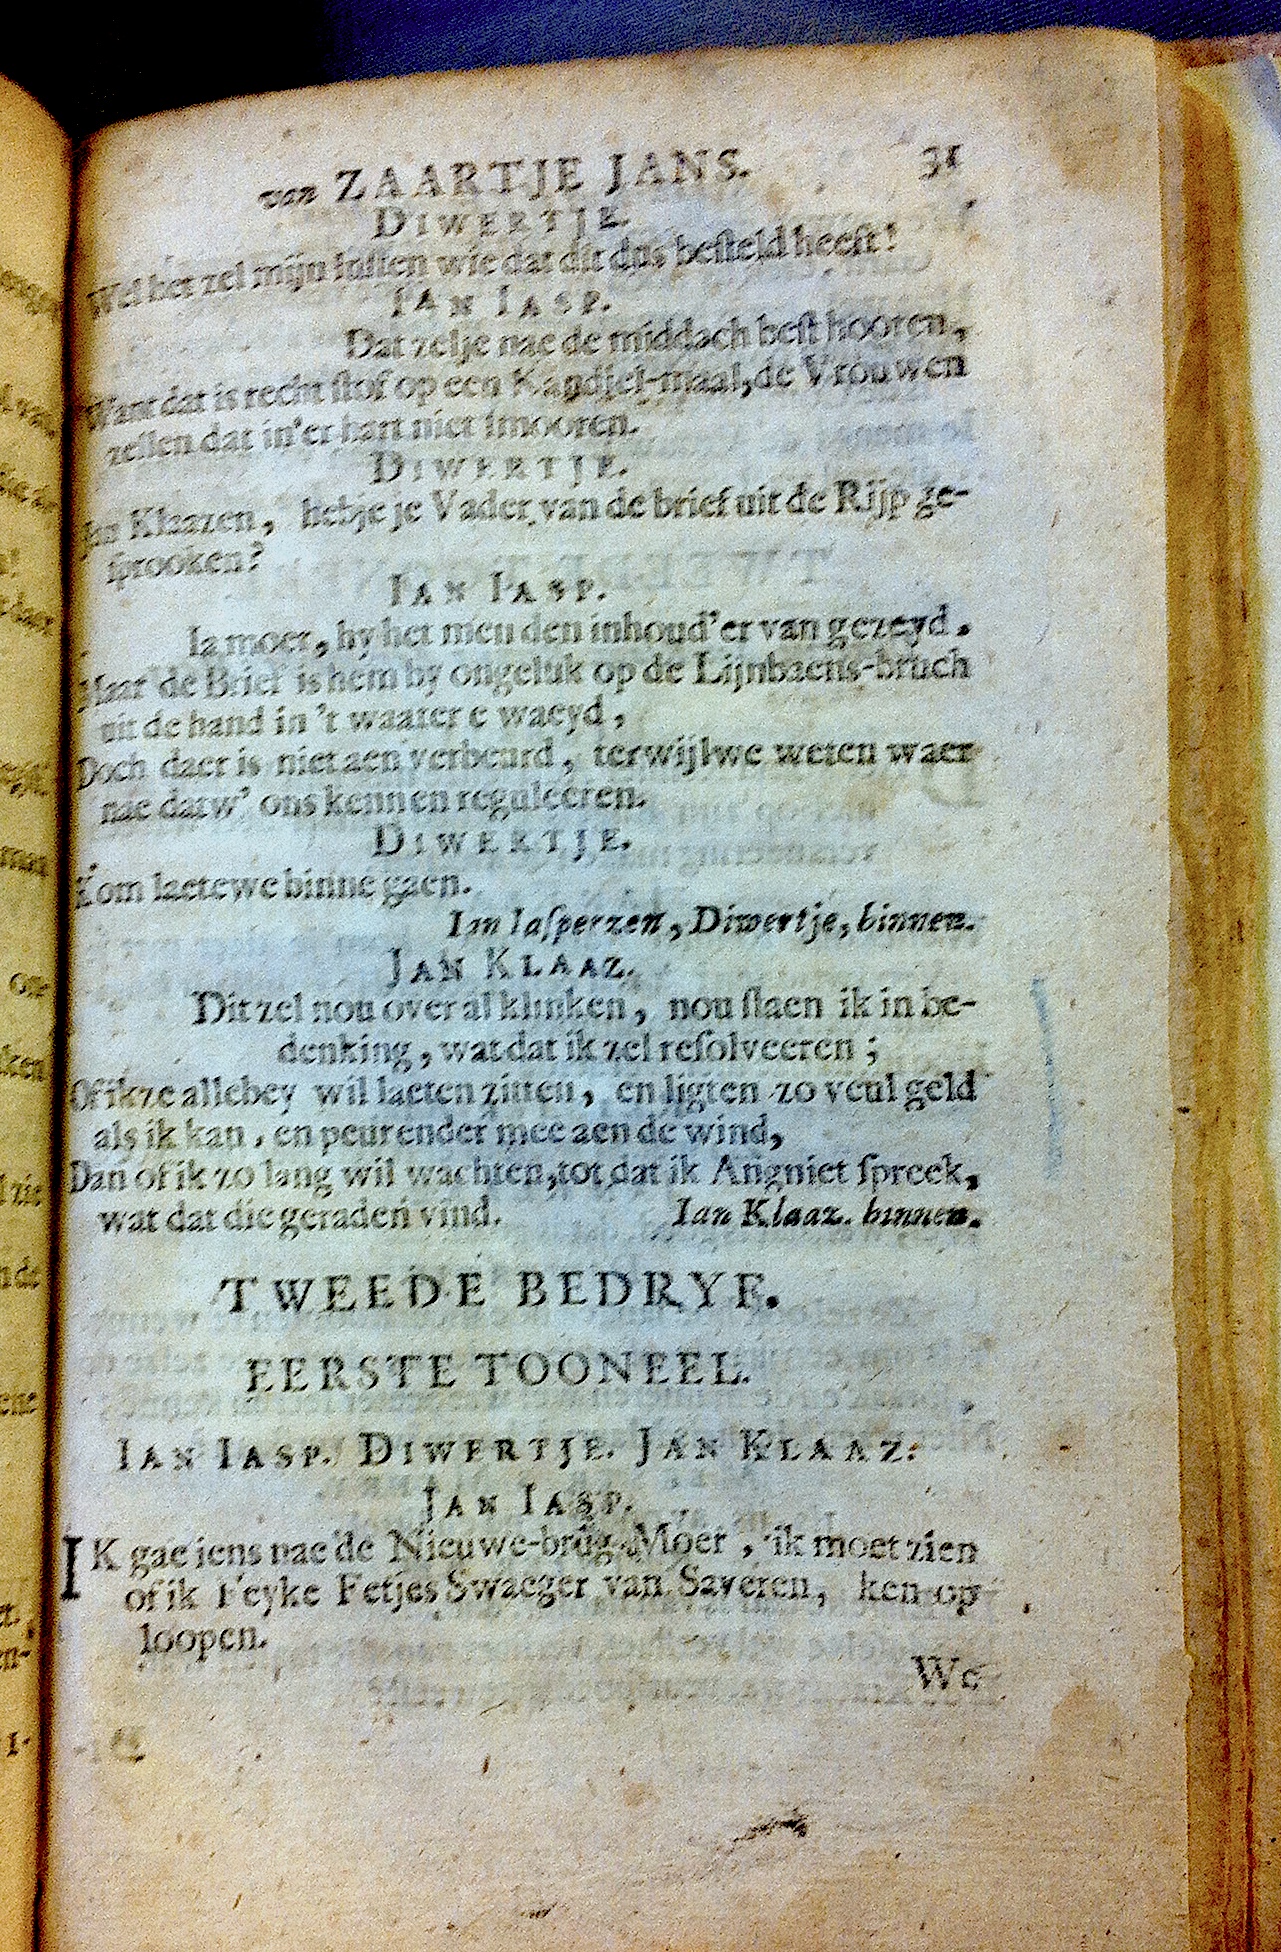 van ZAARTJE JANS. 31
DIWERTJE.
Wel het zel mijn lusten wie dat dit dus besteld heeft!
IAN IASP.
Dat zelje nae de middach best hooren,
Want dat is recht stof op een Kandjel-maal, de Vrouwen
zellen dat in'er hart niet smooren.
DIWERTJE.
Jan Klaazen, hebje je Vader van de brief uit de Rijp ge-
sprooken?
IAN IASP.
Ia moer, hy het men den inhoud'er van gezeyd.
Maar de Brief is hem by ongeluk op de Lijnbaens-bruch
uit de hand in 't waater e waeyd,
Doch daer is niet aen verbeurd, terwijl we weten waer
nae datw' ons kennen reguleeren.
DIWERTJE.
Kom laetewe binne gaen.
Ian Iasperzen, Diwertje, binnen.
JAN KLAAZ.
Dit zel nou over al klinken, nou staen ik in be-
denking, wat dat ik zel resolveeren;
Of ikze allebey wil laeten zitten, en ligten zo veul geld
als ik kan, en peurender mee aen de wind,
Dan of ik zo lang wil wachten, tot dat ik Angniet spreek,
wat dat die geraden vind. Ian Klaaz. binnen.
TWEEDE BEDRYF.
EERSTE TOONEEL.
IAN IASP. DIWERTJE. JAN KLAAZ.
JAN IASP.
IK gae iens nae de Nieuwe-brug Moer, ik moet zien
of ik Feyke Fetjes Swaeger van Saveren, ken op
loopen.
We